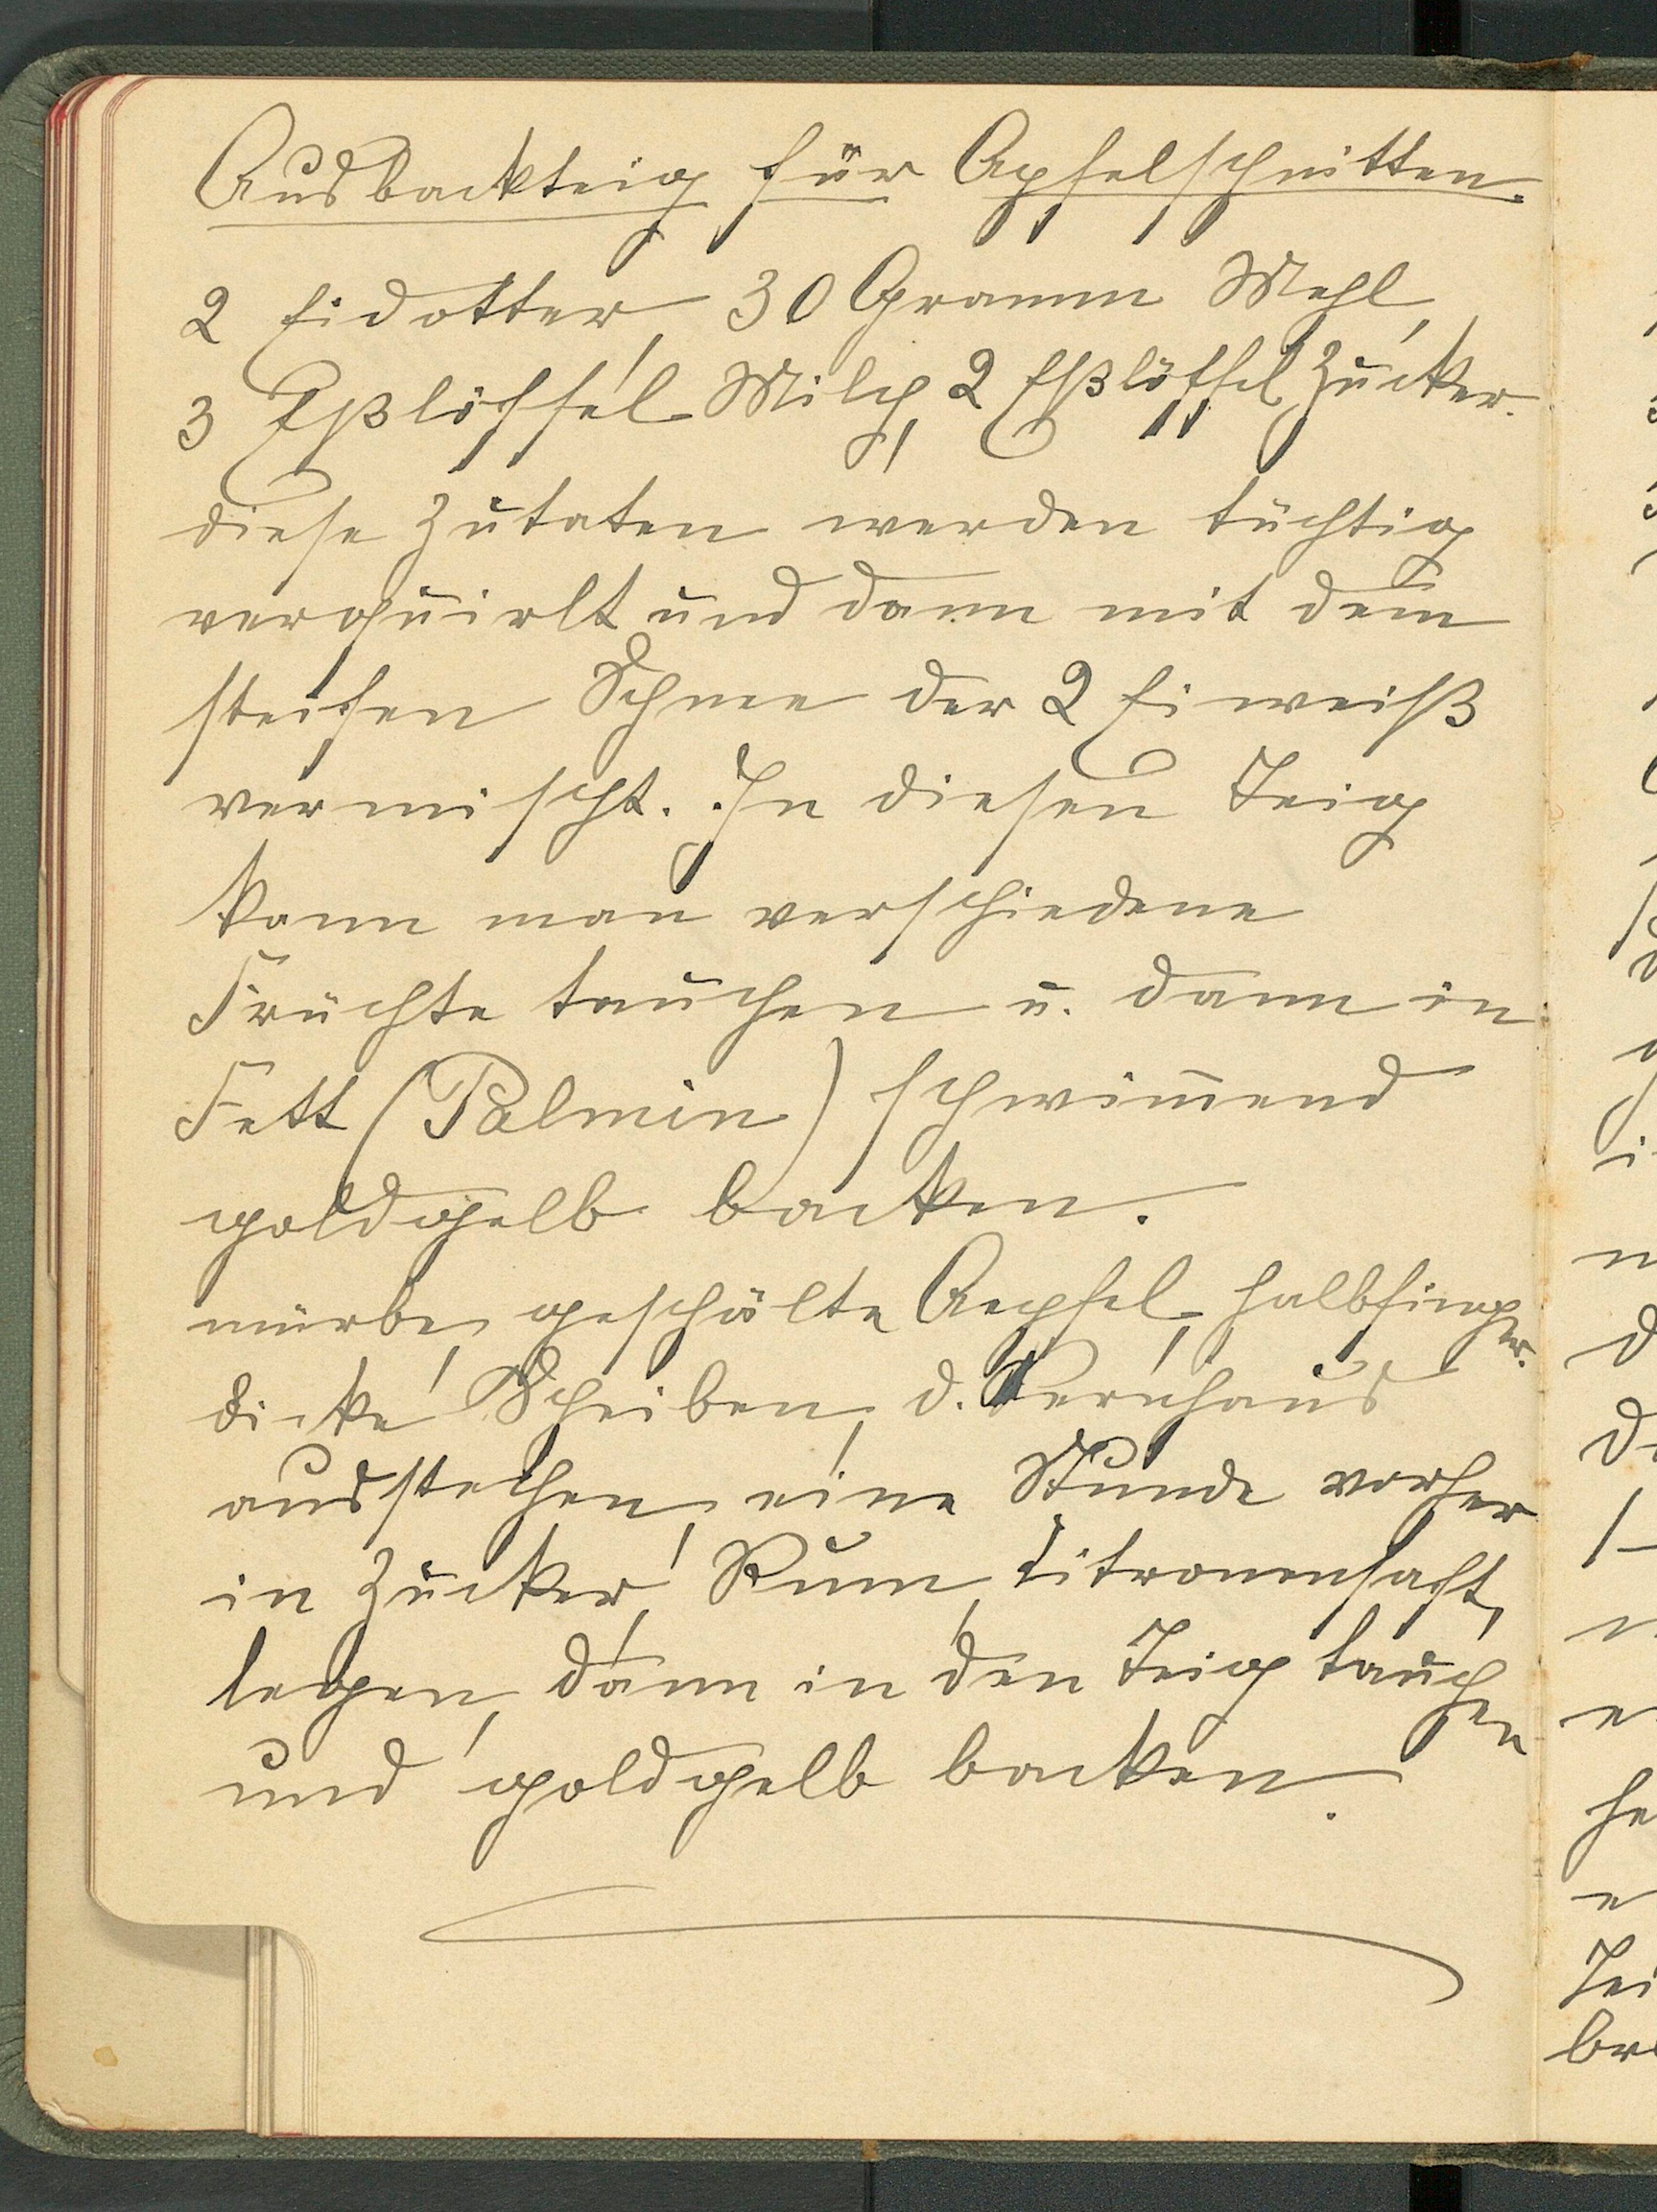 Ausbackteig für Apfelschnitten.
2 Eidotter, 30 Gramm Mehl,
3 Eßlöffel Milch, 2 Eßlöffel Zucker.
diese Zutaten werden tüchtig
verquirlt und dann mit dem
steifen Schnee der 2 Eiweiß
vermischt. In diesen Teig
kann man verschiedene
Früchte tauchen u. dann in
Fett (Palmin) schwimmend
goldgelb backen.
mürbe, geschälte Aepfel, halbfinger
dicke Scheiben, d. Kernhaus
ausstechen, eine Stunde vorher
in Zucker, Rum, Citronensaft,
legen, dann in den Teig tauchen
und goldgelb backen.